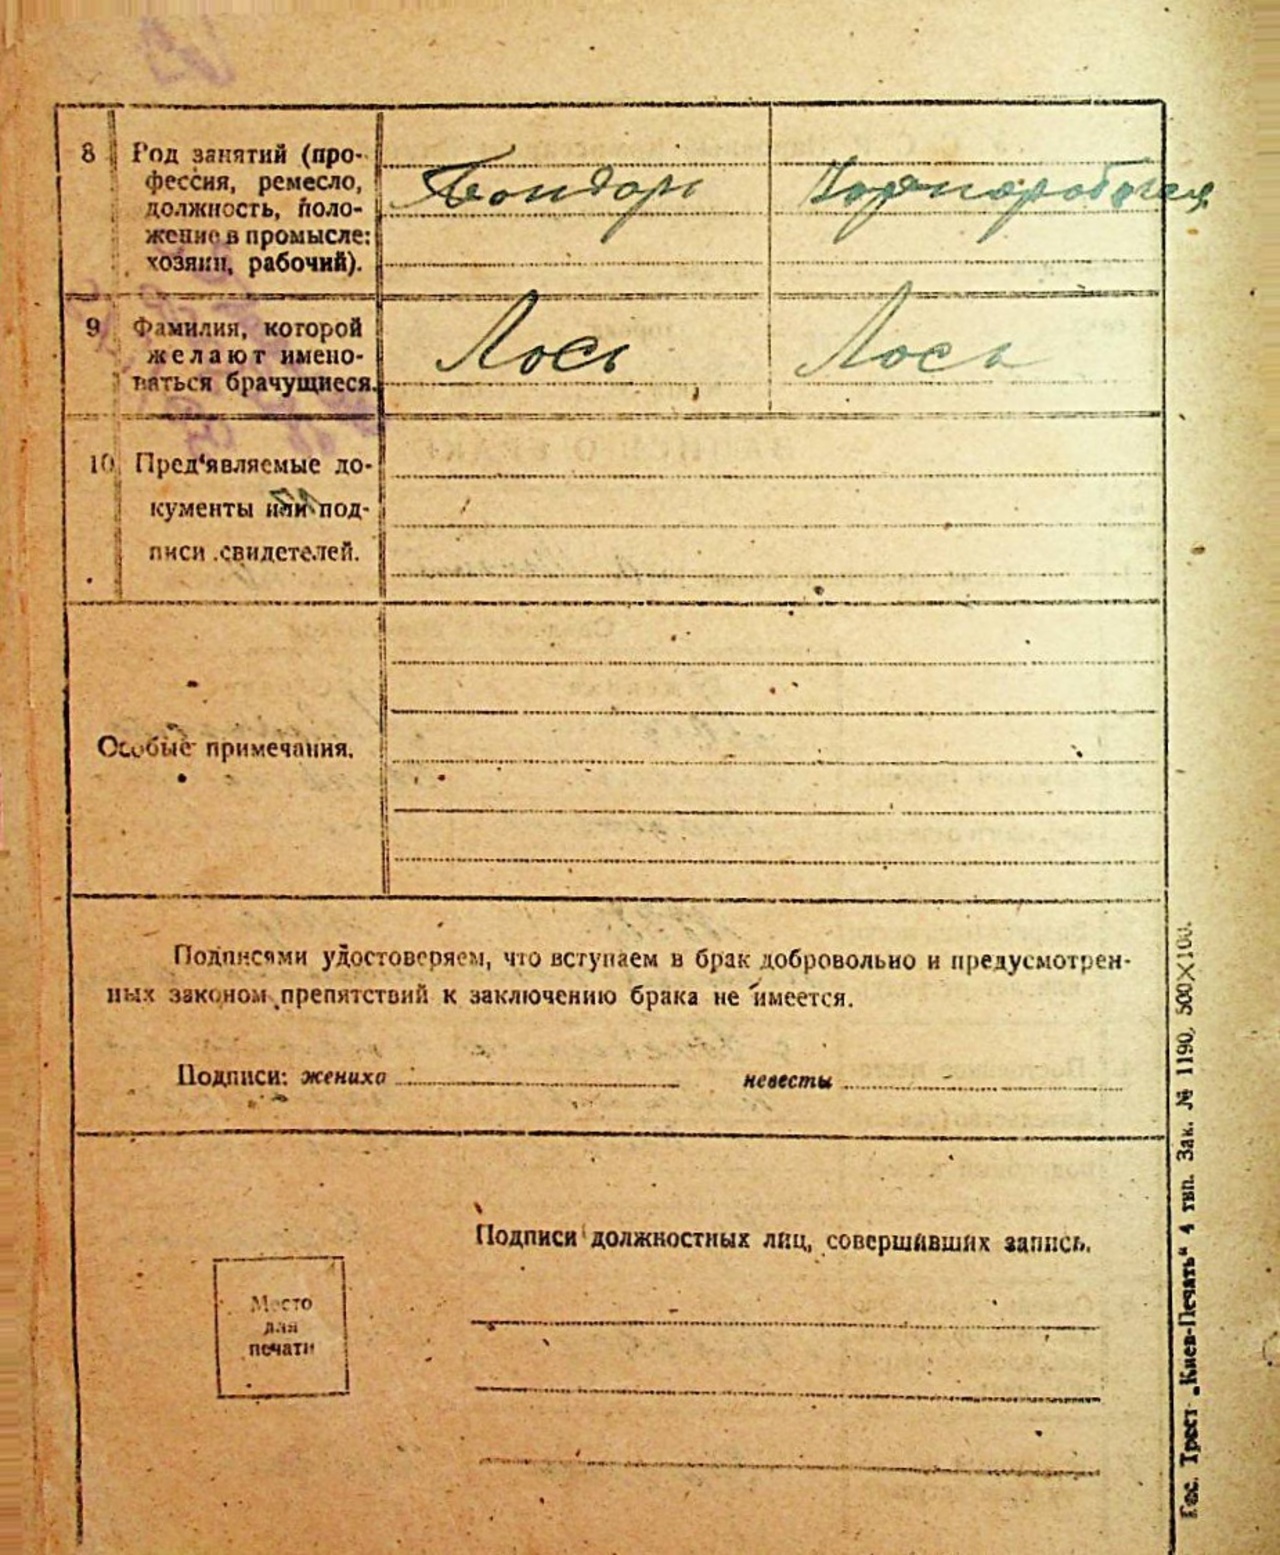 8 Род занятий (про-
фессия, ремесло,
должность, поло-
жение в промысле:
хозяин, рабочий).
Бондарь
Чорнорабочая
9 Фамилия, которой
желают имено-
ваться брачущиеся.
Лось
Лось
10 Пред'являемые до-
кументы или под-
писи свидетелей.
Особые примечания.
Подписями удостоверяем, что вступаем в брак добровольно и предусмотрен-
ных законом препятствий к заключению брака не имеется.
Подписи: жениха невесты
Подписи должностных лиц, совершивших запись.
Место
для
печати
Гос. Трест „Киев-Печать“ 4 тип. Зак. № 1190. 500×100.